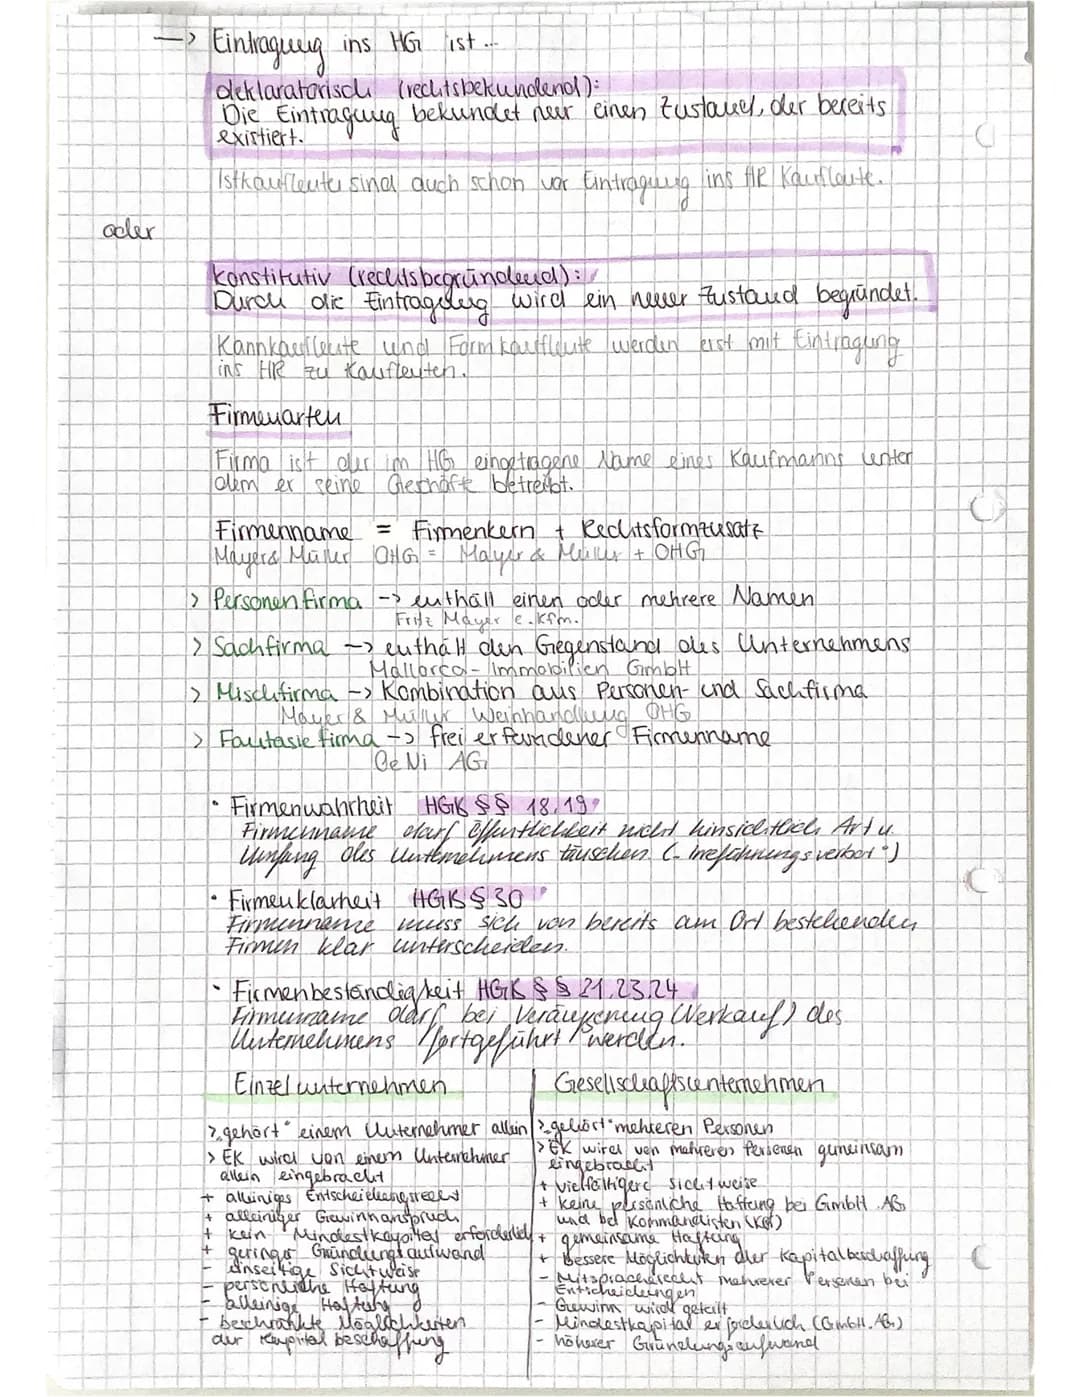 —> Eintragung ins HG ist ...
deklaratorisch (rechtsbekundend):
Die Eintragung bekundet nur einen Zustand, der bereits
existiert.
Istkaufleute sind auch schon vor Eintragung ins HR Kaufleute.
oder
konstitutiv (rechtsbegründend):
Durch die Eintragung wird ein neuer Zustand begründet.
Kannkaufleute und Formkaufleute werden erst mit Eintragung
ins HR zu Kaufleuten.
Firmenarten
Firma ist der im HG eingetragene Name eines Kaufmanns unter
dem er seine Geschäfte betreibt.
Firmenname = Firmenkern + Rechtsformzusatz
Mayer & Müller OHG = Mayer & Müller + OHG
> Personenfirma -> enthält einen oder mehrere Namen
Fritz Mayer e.Kfm.
> Sachfirma -> enthält den Gegenstand des Unternehmens
Mallorca-Immobilien GmbH
> Mischfirma -> Kombination aus Personen- und Sachfirma
Mayer & Müller Weinhandlung OHG
> Fantasiefirma -> frei erfundener Firmenname
CeNi AG
• Firmenwahrheit HGB §§ 18,19
Firmenname darf Öffentlichkeit nicht hinsichtlich Art u.
Umfang des Unternehmens täuschen. (- Irreführungsverbot")
• Firmenklarheit HGB § 30
Firmenname muss sich von bereits am Ort bestehenden
Firmen klar unterscheiden.
• Firmenbeständigkeit HGB §§ 21,23,24
Firmenname darf bei Veräußerung (Verkauf) des
Unternehmens fortgeführt werden.
Einzelunternehmen
> „gehört" einem Unternehmer allein
> EK wird von einem Unternehmer
allein eingebracht
+ alleiniges Entscheidungsrecht
+ alleiniger Gewinnanspruch
+ kein Mindestkapital erforderlich
+ geringer Gründungsaufwand
- einseitige Sichtweise
- persönliche Haftung
- alleinige Haftung
- beschränkte Möglichkeiten
der Kapitalbeschaffung
Gesellschaftsunternehmen
> „gehört" mehreren Personen
> EK wird von mehreren Personen gemeinsam
eingebracht
+ vielfältigere Sichtweise
+ keine persönliche Haftung bei GmbH, AG
und bei Kommandisten (KG)
+ gemeinsame Haftung
+ bessere Möglichkeiten der Kapitalbeschaffung
- Mitspracherecht mehrerer Personen bei
Entscheidungen
- Gewinn wird geteilt
- Mindestkapital erforderlich (GmbH, AG)
- höherer Gründungsaufwand